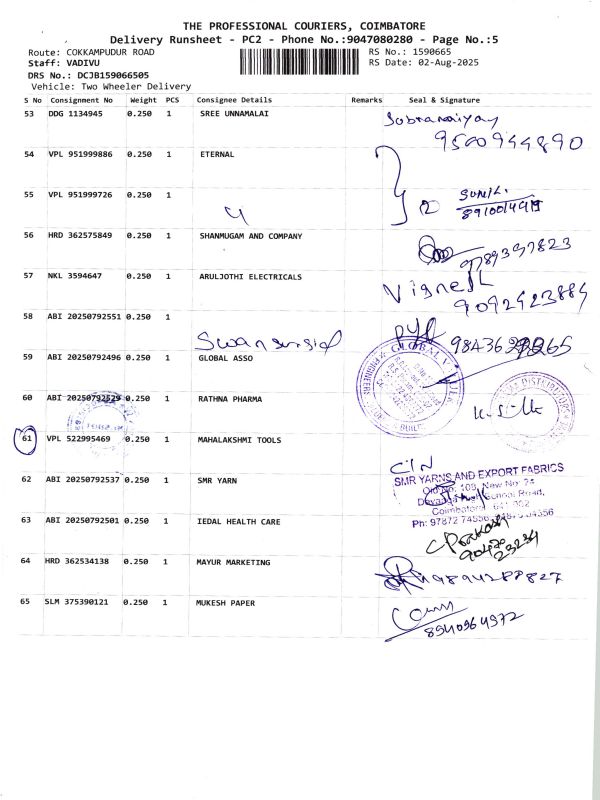 THE PROFESSIONAL COURIERS, COIMBATORE
Delivery Runsheet - PC2 - Phone No.:9047080280 - Page No.:5
Route: COKKAMPUDUR ROAD
RS No.: 1590665
Staff: VADIVU
RS Date: 02-Aug-2025
DRS No.: DCJB159066505
Vehicle: Two Wheeler Delivery
S No Consignment No Weight PCS Consignee Details Remarks Seal & Signature
53 DDG 1134945 0.250 1 SREE UNNAMALAI
9500944890
54 VPL 951999886 0.250 1 ETERNAL
55 VPL 951999726 0.250 1
4 2 SUNIL.
56 HRD 362575849 0.250 1 SHANMUGAM AND COMPANY
9789397823
57 NKL 3594647 0.250 1 ARULJOTHI ELECTRICALS
Vignesh
9092423884
58 ABI 20250792551 0.250 1
59 ABI 20250792496 0.250 1 GLOBAL ASSO
GLOBAL
60 ABI 20250792529 0.250 1 RATHNA PHARMA
61 VPL 522995469 0.250 1 MAHALAKSHMI TOOLS
62 ABI 20250792537 0.250 1 SMR YARN
SMR YARNS AND EXPORT FABRICS
Old No: 108, New No: 24
School Road,
63 ABI 20250792501 0.250 1 IEDAL HEALTH CARE
64 HRD 362534138 0.250 1 MAYUR MARKETING
9894288827
65 SLM 375390121 0.250 1 MUKESH PAPER
8940964972